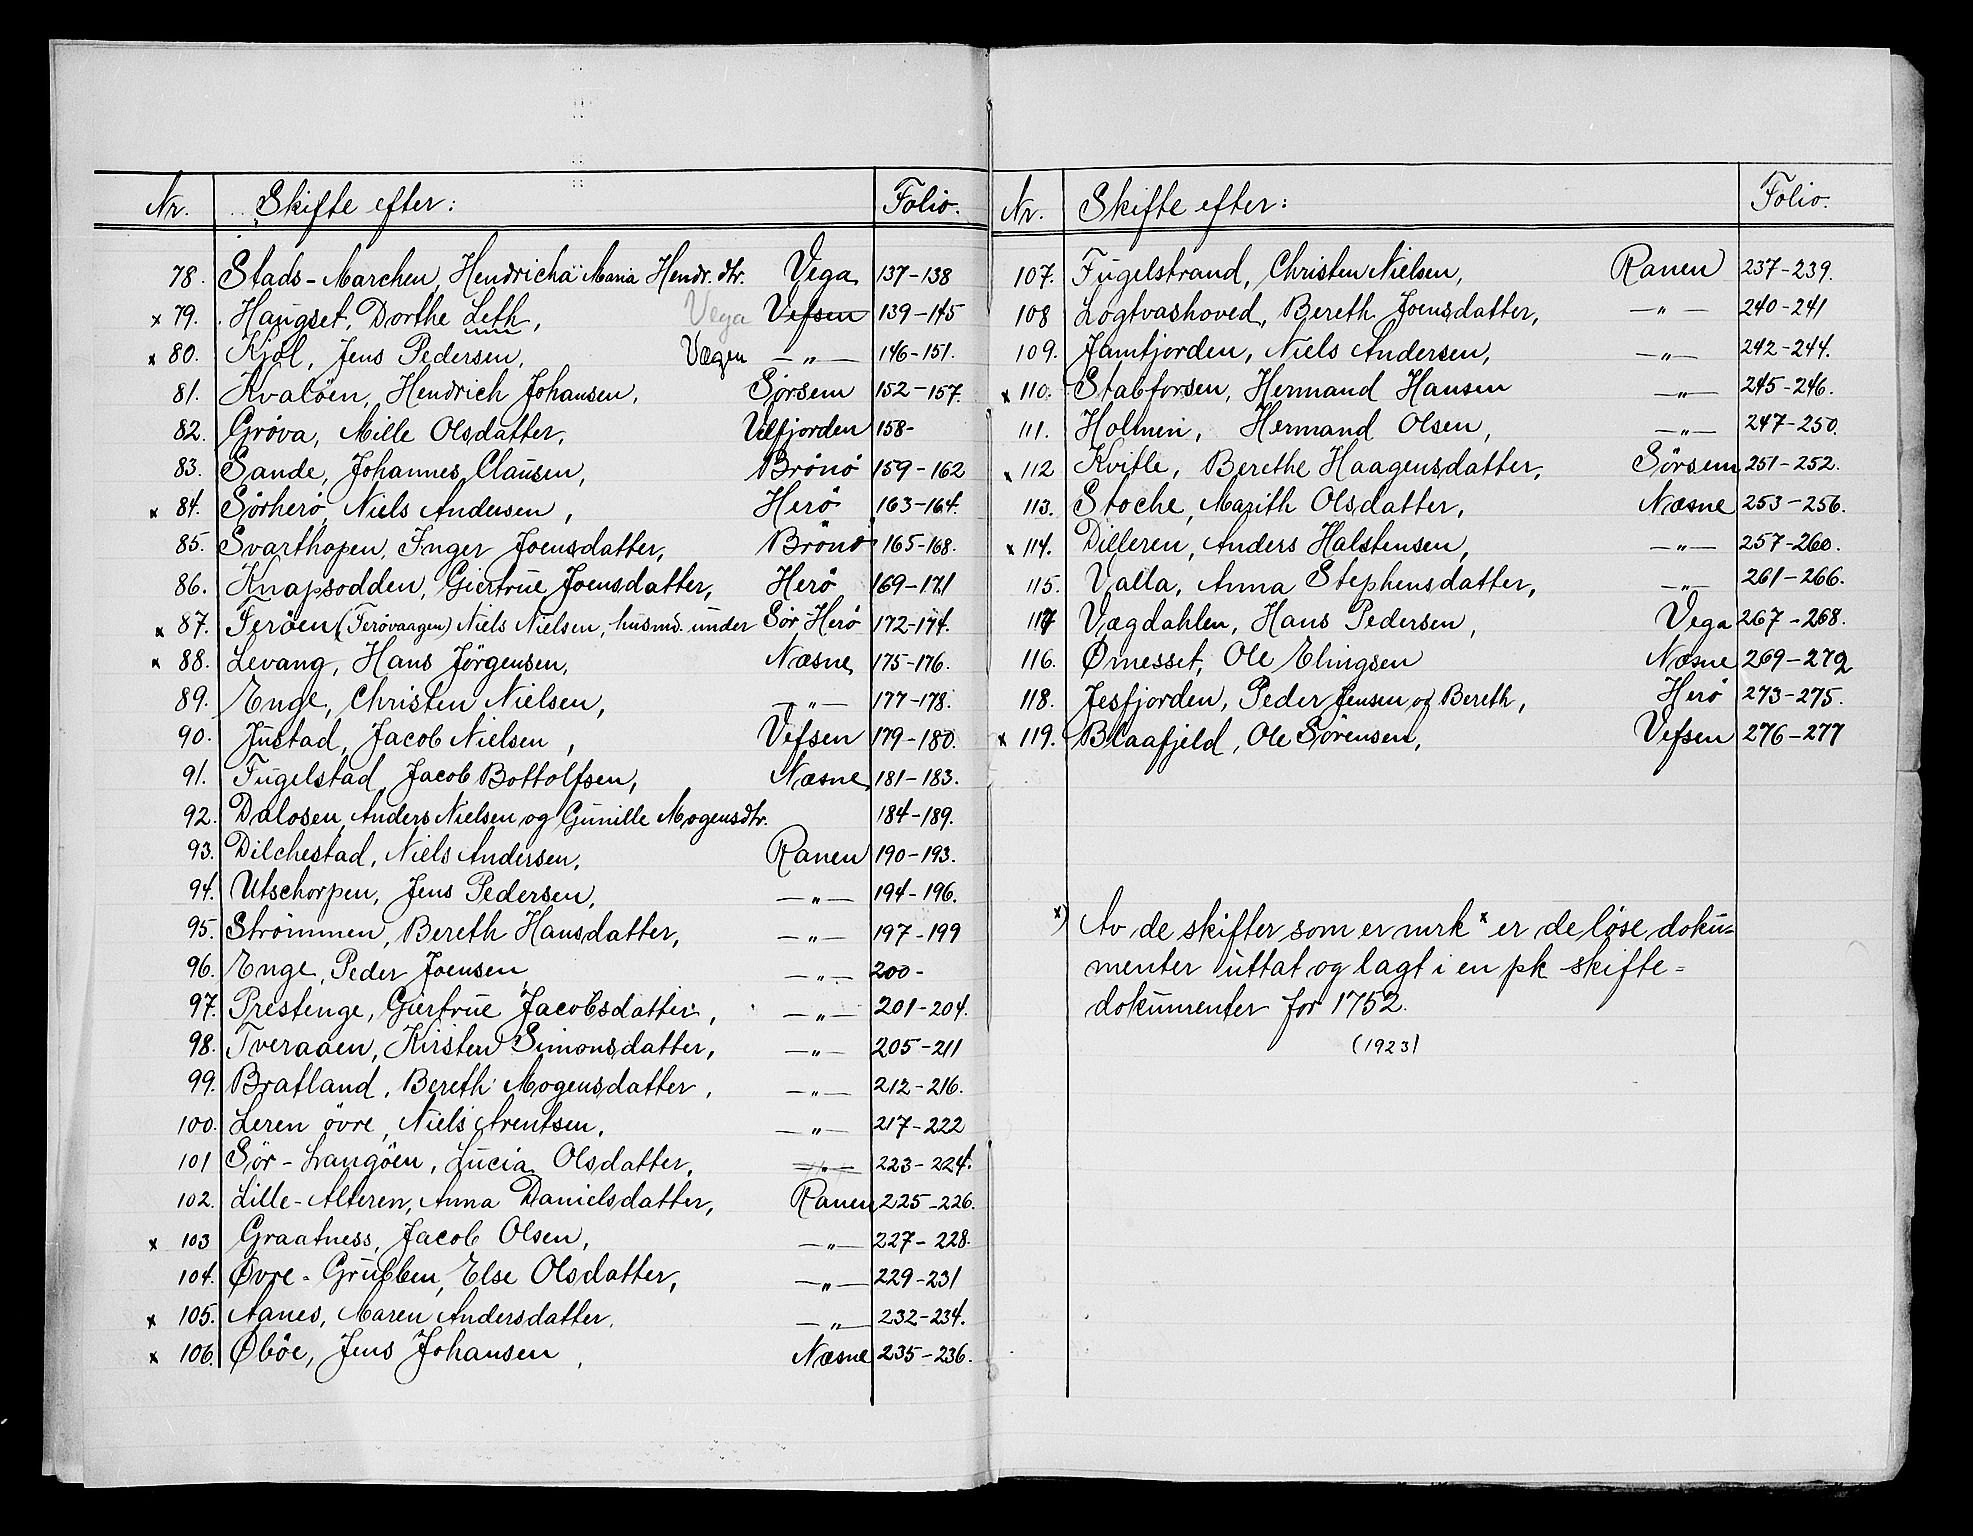 Nr. Skifte efter: Folio.
78. Stads-Marchen, Hendricha Maria Hendr. dtr. Vega 137-138
x 79. Haugset, Dorthe Leth, Vega Vefsen 139-145
x 80. Kjøl, Jens Pedersen, Vægen —„— 146-151.
81. Kvaløen, Hendrich Johansen, Sørsem 152-157.
82. Grøva, Mille Olsdatter, Velfjorden 158-
83. Sande, Johannes Clausen, Brønø 159-162
x 84. Sørherø, Niels Andersen, Herø 163-164.
85. Svarthopen, Inger Joensdatter, Brønø 165-168.
86. Knapsodden, Giertrue Joensdatter, Herø 169-171
x 87. Ferøen (Ferøvaagen) Niels Nielsen, husmd. under Sør-Herø 172-174.
x 88. Levang, Hans Jørgensen, Næsne 175-176.
89. Enge, Christen Nielsen, —„— 177-178.
90. Justad, Jacob Nielsen, Vefsen 179-180.
91. Fugelstad, Jacob Bottolfsen, Næsne 181-183.
92. Dalosen, Anders Nielsen og Gunille Mogensdtr. 184-189.
93. Dilchestad, Niels Andersen, Ranen 190-193.
94. Utschorpen, Jens Pedersen, —„— 194-196.
95. Strømmen, Bereth Hansdatter, —„— 197-199
96. Enge, Peder Joensen —„— 200-
97. Prestenge, Giertrue Jacobsdatter, —„— 201-204.
98. Tveraaen, Kirsten Simonsdatter, —„— 205-211
99. Bratland, Bereth Mogensdatter, —„— 212-216.
100. Leren øvre, Niels Arentsen, —„— 217-222
101 Sør-Langøen, Lucia Olsdatter, —„— 223-224.
102. Lille-Alteren, Anna Danielsdatter, Ranen 225-226.
x 103 Graatness, Jacob Olsen, —„— 227-228.
104. Øvre-Grubben, Else Olsdatter, —„— 229-231
x 105. Aanes, Maren Andersdatter. —„— 232-234.
x 106. Øbøe, Jens Johansen, Næsne 235-236.
Nr. Skifte efter: Folio.
107. Fugelstrand, Christen Nielsen, Ranen 237-239.
108 Logtvashoved, Bereth Joensdatter, —„— 240-241
109. Jamfjorden, Niels Andersen, —„— 242-244.
x 110. Stabforsen, Hermand Hansen —„— 245-246.
111. Holmen, Hermand Olsen, —„— 247-250.
x 112 Kvitle, Berethe Haagensdatter, Sørsem 251-252.
113. Stoche, Marith Olsdatter, Næsne 253-256.
x 114. Dilleren, Anders Halstensen, —„— 257-260.
115. Valla, Anna Stephensdatter, —„— 261-266.
117 Vægdahlen, Hans Pedersen, Vega 267-268.
116. Ørnesset, Ole Elingsen Næsne 269-272
118. Jesfjorden, Peder Jensen og Bereth, Herø 273-275.
x 119. Blaafjeld, Ole Sørensen, Vefsen 276-277
x) Av de skifter som er mrk x er de løse doku=
menter uttat og lagt i en pk skifte=
dokumenter for 1752.
(1923)